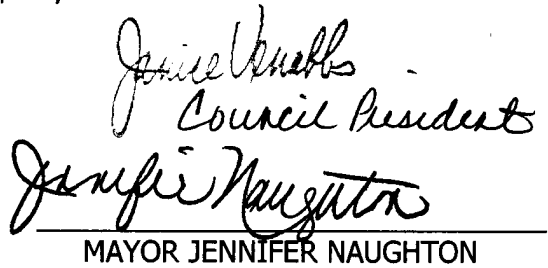 Janice Venables
Council President
Jennifer Naughton
MAYOR JENNIFER NAUGHTON